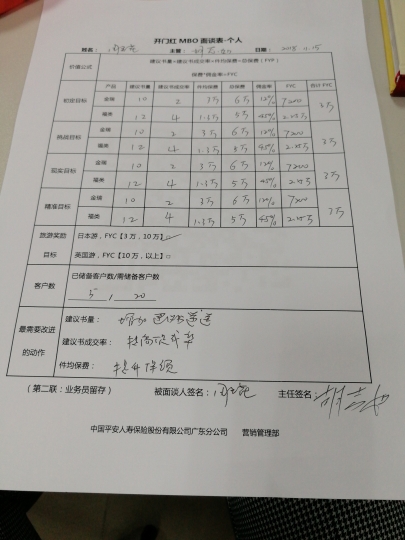 开门红 MBO 面谈表-个人
姓名： 主管： 日期：2018.11.15
价值公式 建议书量*建议书成功率*件均保费=总保费（FYP）
保费*佣金率=FYC
产品 建议书量 建议书成功率 件均保费 总保费 佣金率 FYC 合计FYC
初定目标 金瑞 10 2 3万 6万 12% 7200 3万
福类 12 4 1.3万 5万 45% 2.25万
挑战目标 金瑞 10 2 3万 6万 12% 7200 3万
福类 12 4 1.3万 5万 45% 2.25万
现实目标 金瑞 10 2 3万 6万 12% 7200 3万
福类 12 4 1.3万 5万 45% 2.25万
精准目标 金瑞 10 2 3万 6万 12% 7200 3万
福类 12 4 1.3万 5万 45% 2.25万
旅游奖励 日本游，FYC【3万，10万】
目标 英国游，FYC【10万，以上】□
客户数 已储备客户数/需储备客户数
5 / 20
最需要改进的动作
建议书量：增加建议书递送
建议书成交率：提高成交率
件均保费：提升保额
（第二联：业务员留存） 被面谈人签名： 主任签名：
中国平安人寿保险股份有限公司广东分公司 营销管理部